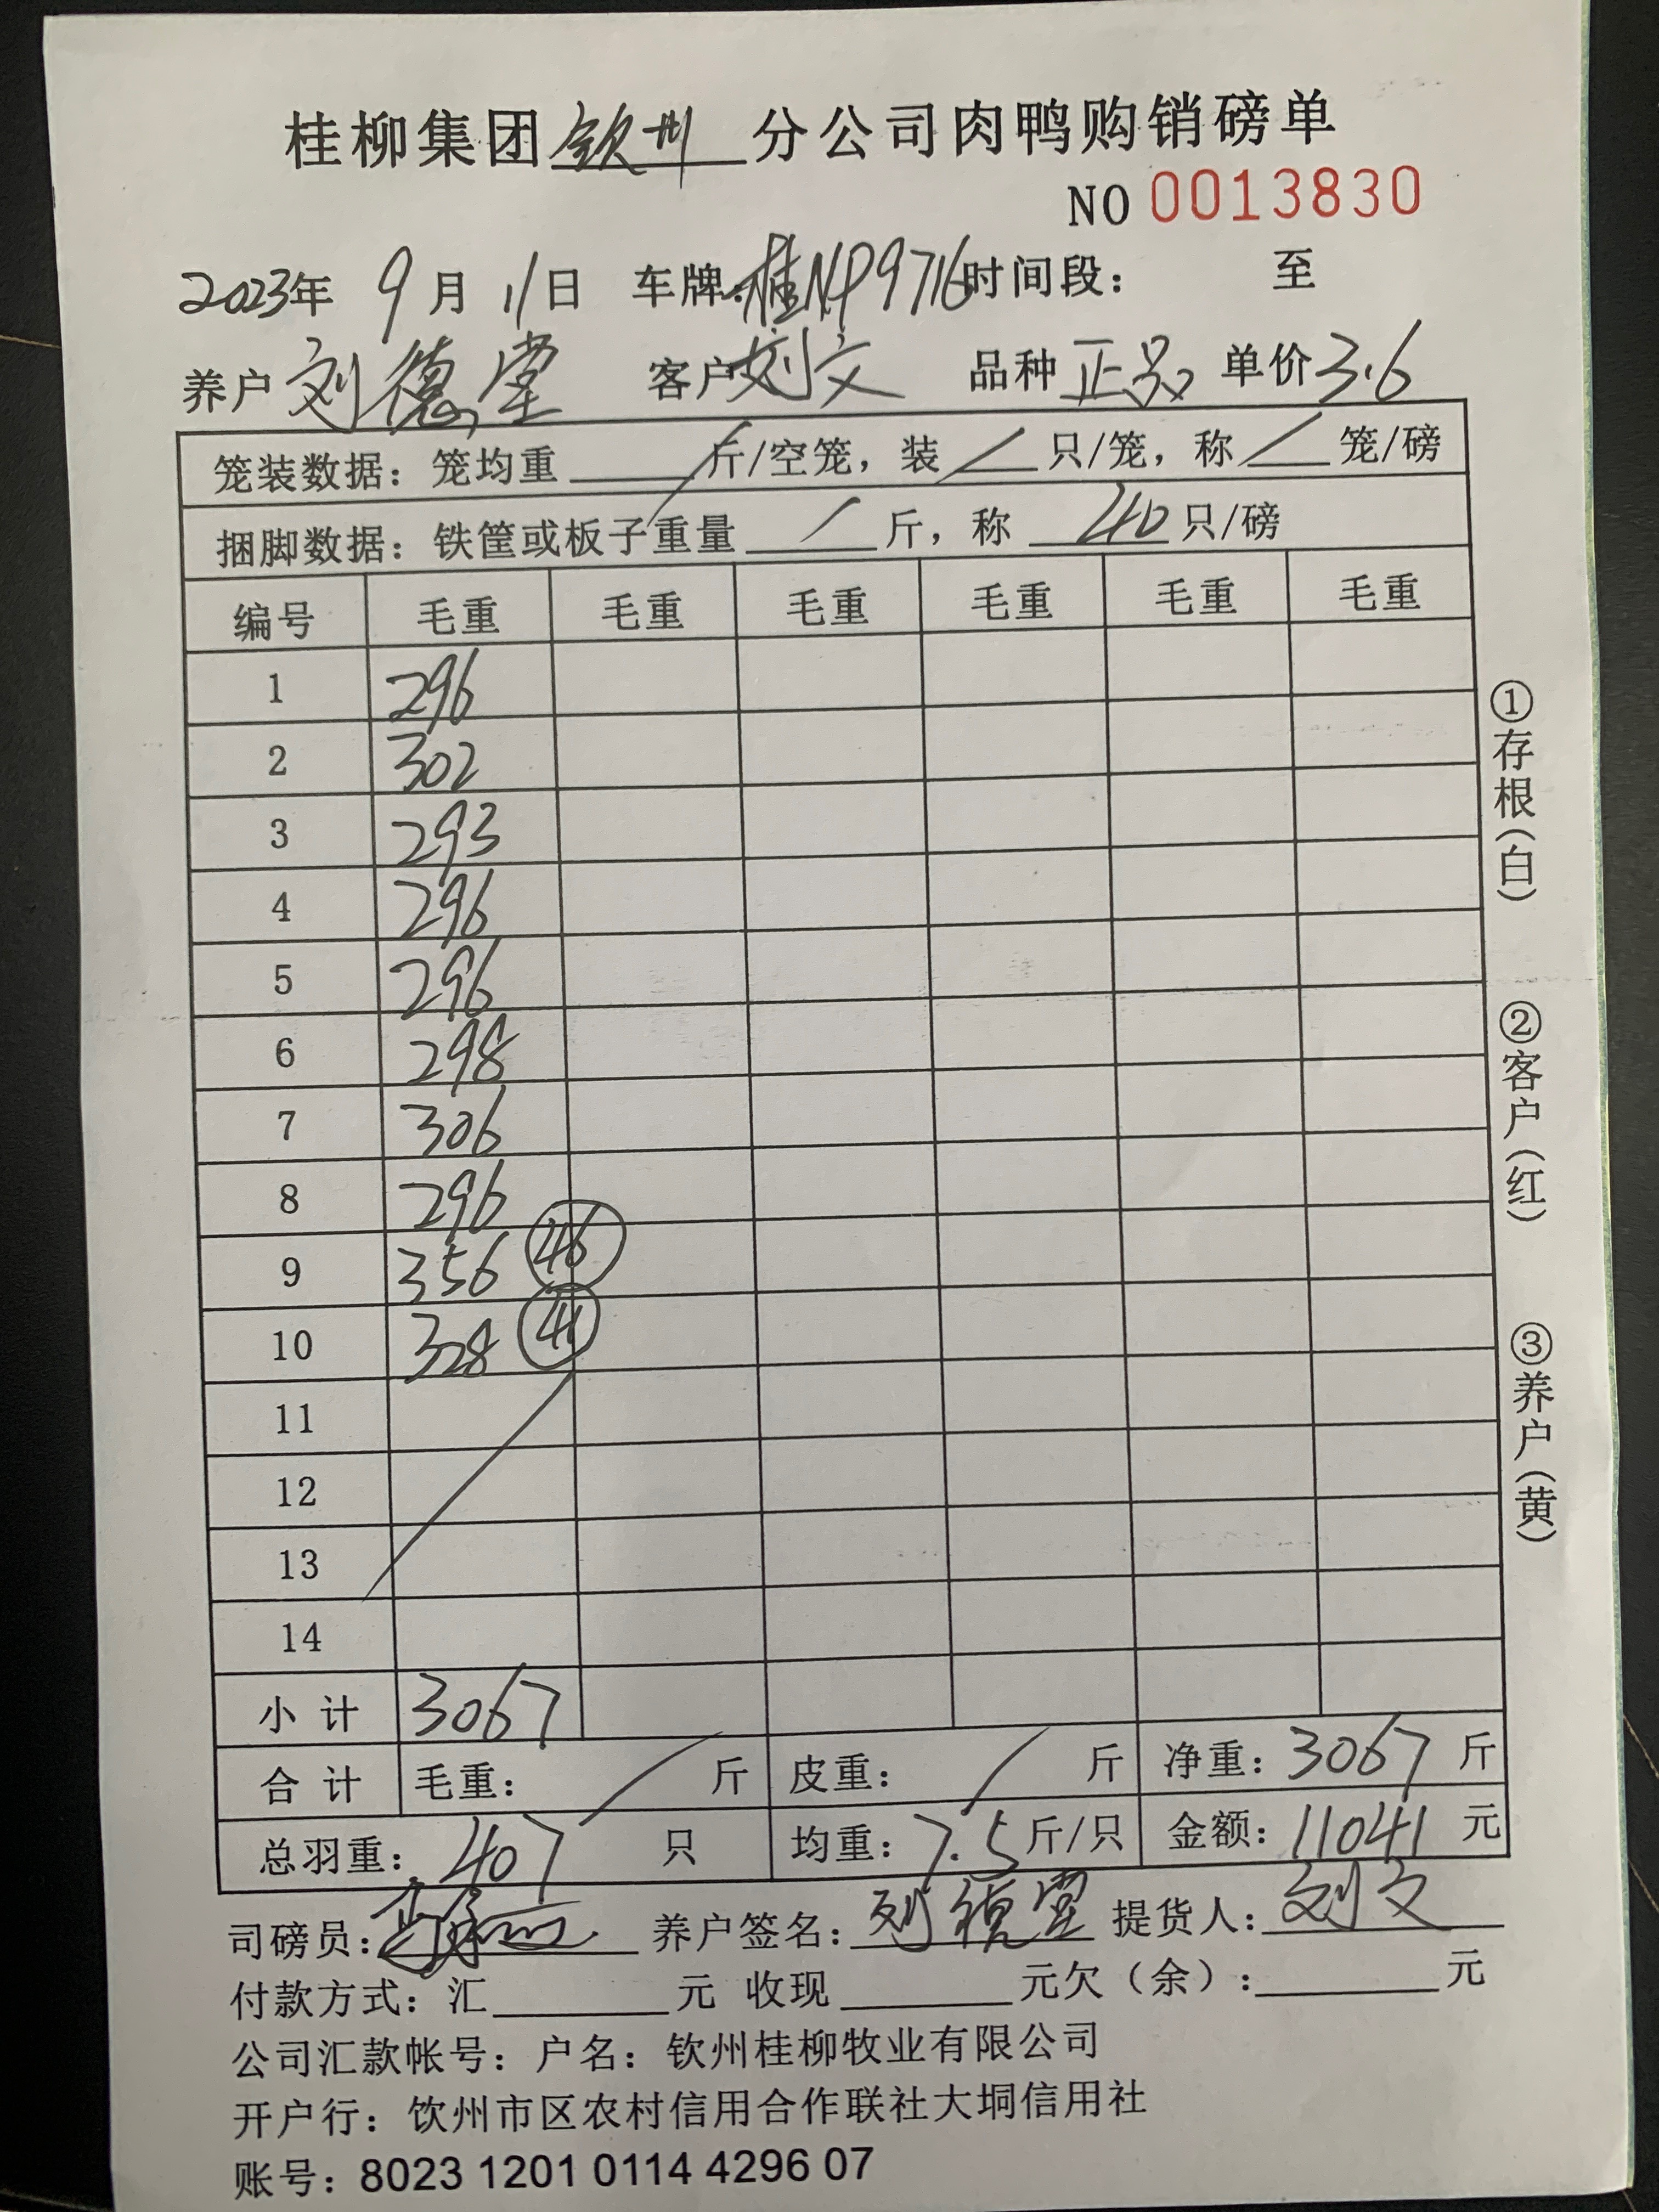 桂柳集团钦州分公司肉鸭购销磅单
NO 0013830
2023年 9月 11日 车牌:桂NP9716 时间段: 至
养户 刘德堂 客户 刘文 品种 正品 单价 3.6
笼装数据: 笼均重 / 斤/空笼, 装 / 只/笼, 称 / 笼/磅
捆脚数据: 铁筐或板子重量 / 斤, 称 40 只/磅
编号 毛重 毛重 毛重 毛重 毛重 毛重
1 296
2 302
3 293
4 296
5 296
6 298
7 306
8 296
9 356 46
10 328 41
11
12
13
14
小计 3067
合计 毛重: / 斤 皮重: / 斤 净重: 3067 斤
总羽重: 407 只 均重: 7.5 斤/只 金额: 11041 元
司磅员: 养户签名: 刘德堂 提货人: 刘文
付款方式: 汇 元 收现 元欠(余): 元
公司汇款帐号: 户名: 钦州桂柳牧业有限公司
开户行: 钦州市区农村信用合作联社大垌信用社
账号: 8023 1201 0114 4296 07
①存根(白)
②客户(红)
③养户(黄)